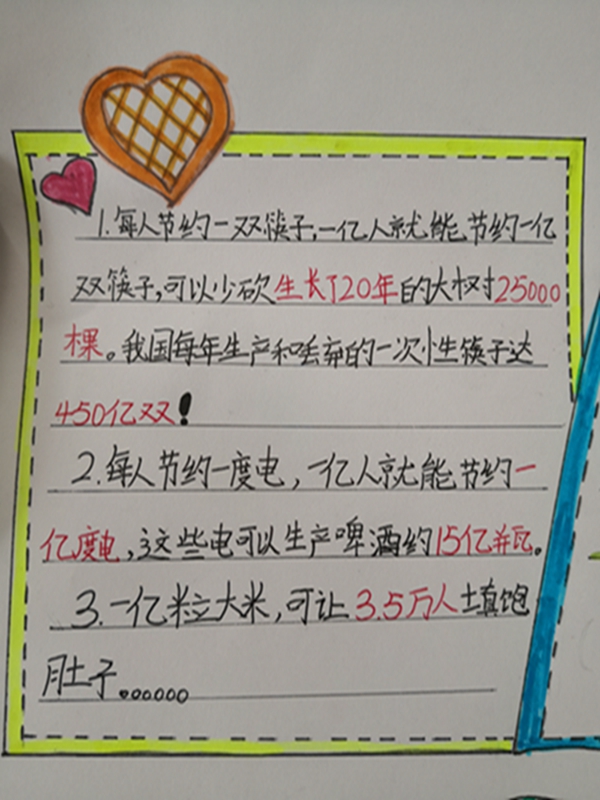 1.每人节约一双筷子,一亿人就能节约一亿
双筷子,可以少砍生长了20年的大树25000
棵。我国每年生产和丢弃的一次性筷子达
450亿双!
2.每人节约一度电,一亿人就能节约一
亿度电,这些电可以生产啤酒约15亿瓶。
3.一亿粒大米,可让3.5万人填饱
肚子。。。。。。。